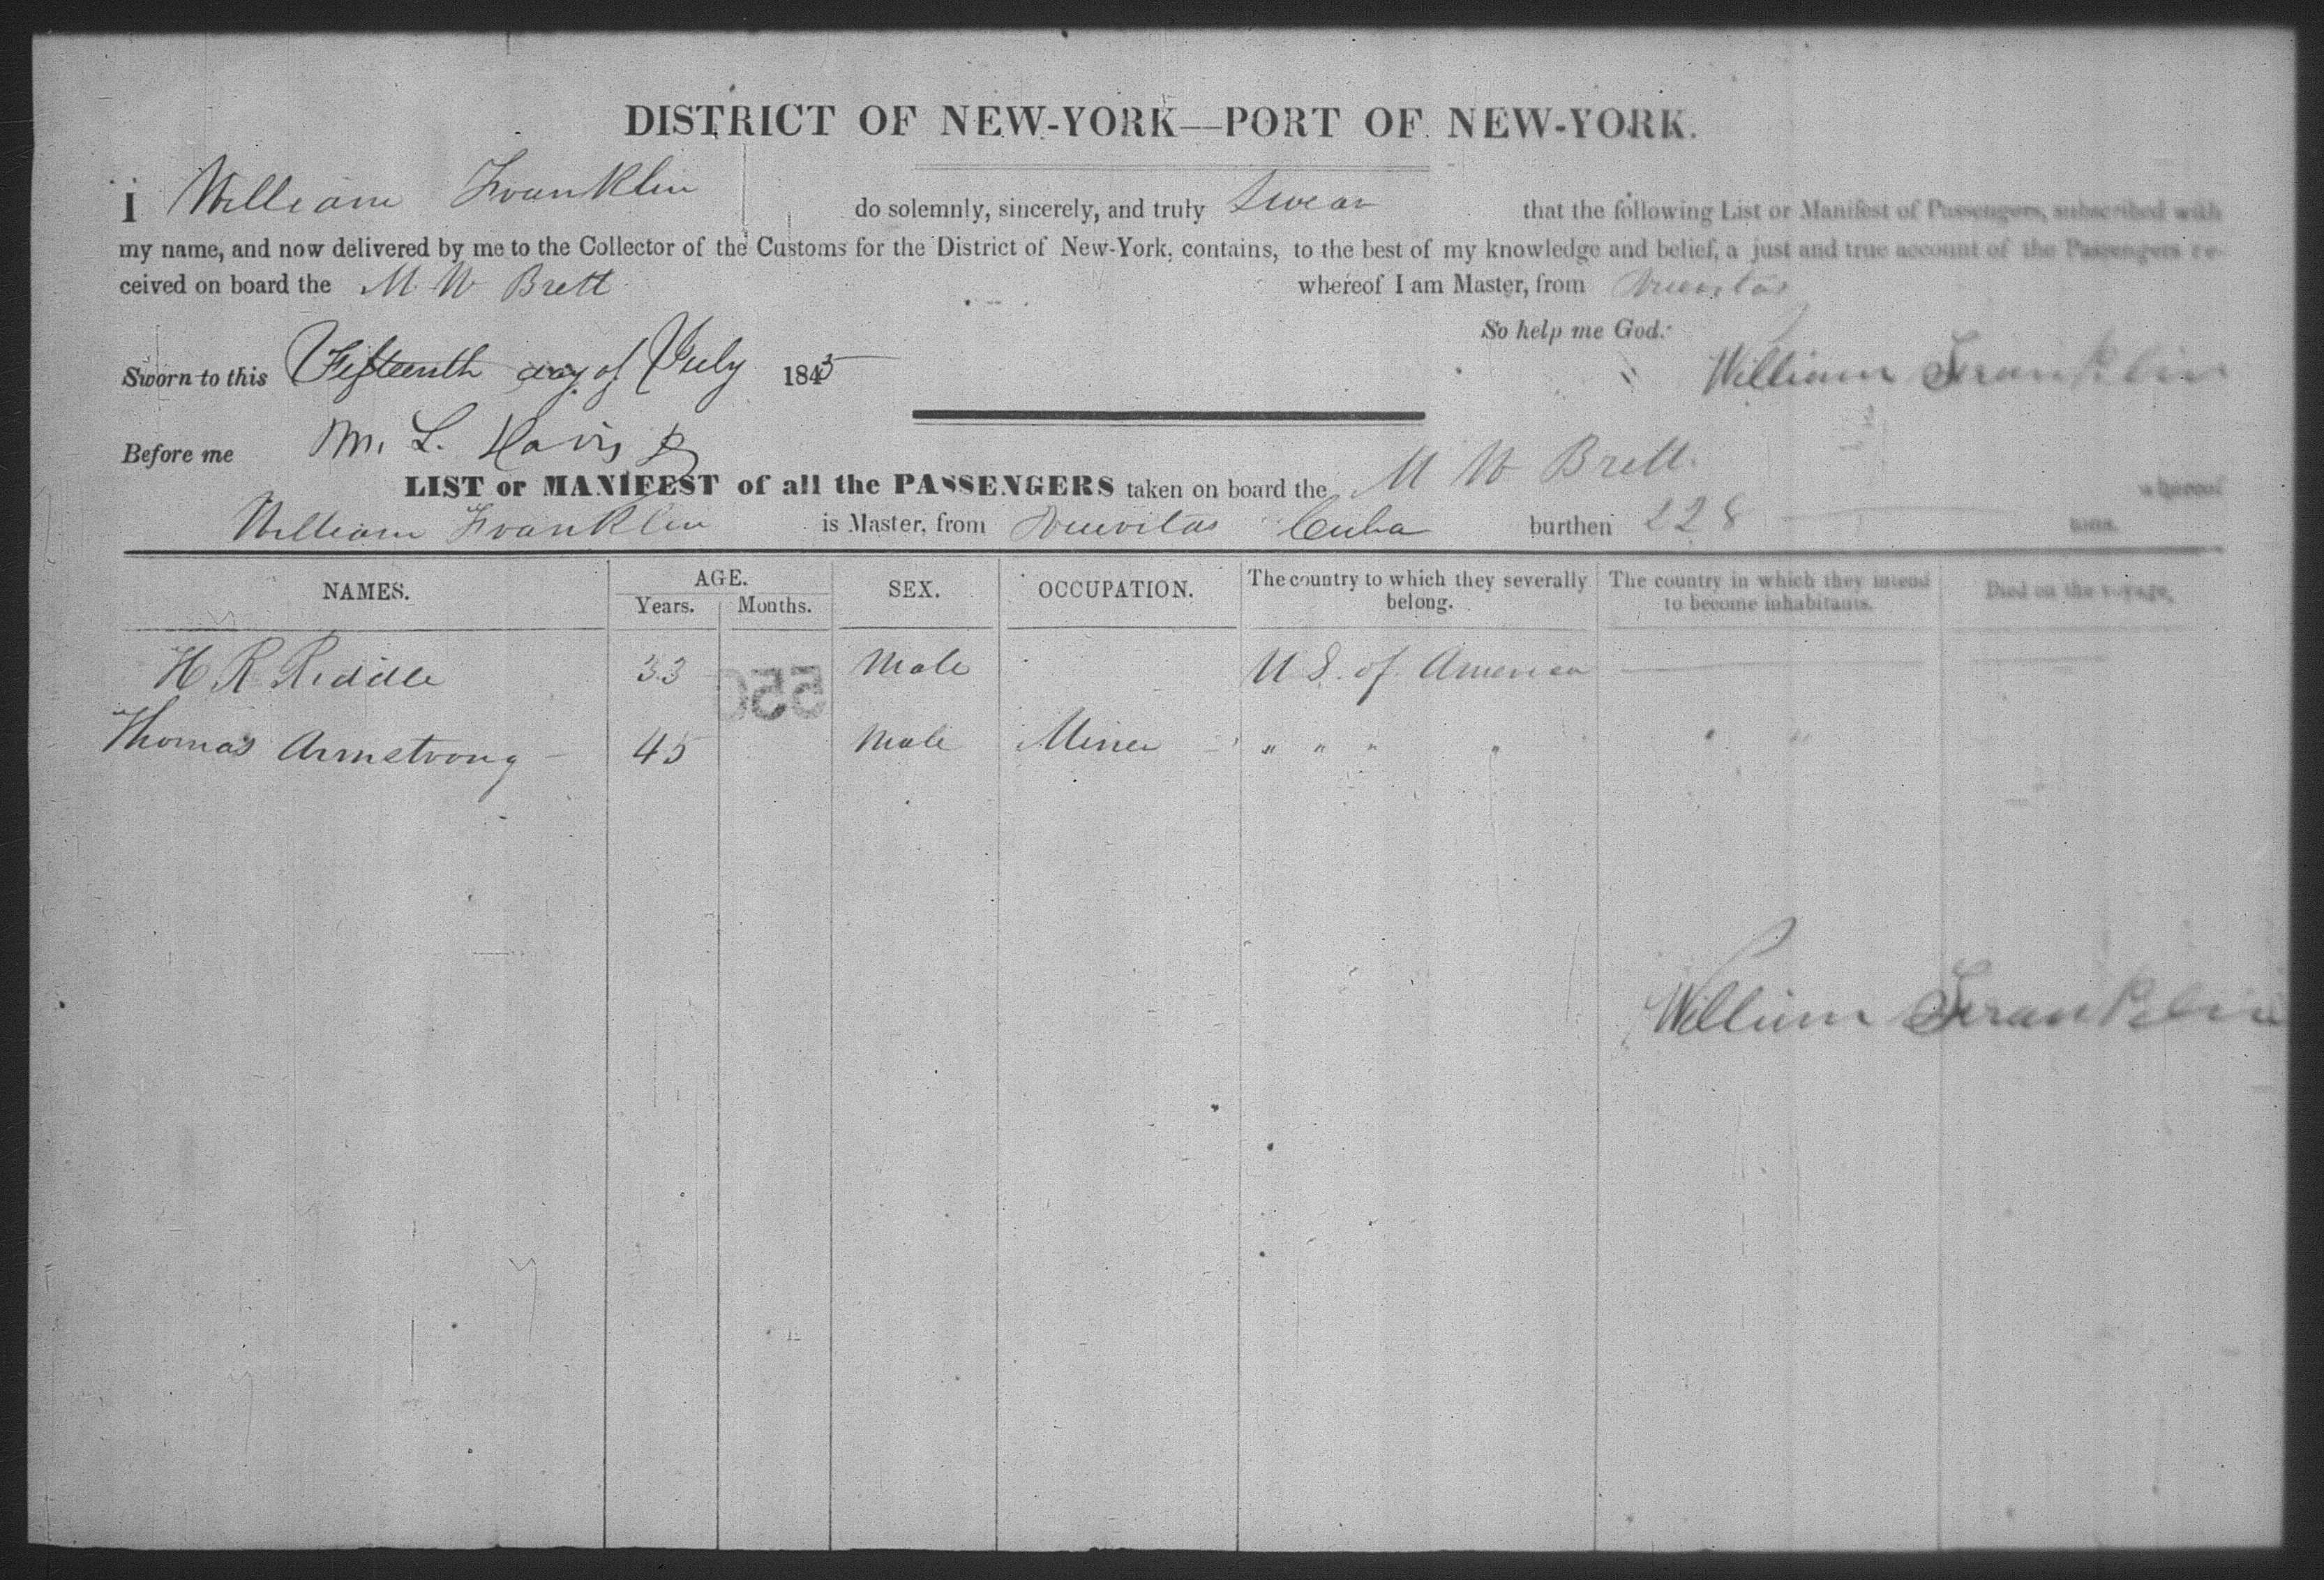 DISTRICT OF NEW-YORK—PORT OF NEW-YORK.
I William Franklin do solemnly, sincerely, and truly Swear that the following List or Manifest of Passengers, subscribed with
my name, and now delivered by me to the Collector of the Customs for the District of New-York, contains, to the best of my knowledge and belief, a just and true account of the Passengers re-
ceived on board the M W Brett whereof I am Master, from Nuevitas
So help me God.
Sworn to this Fifteenth day of July 184 William Franklin
Before me M. L. Davis
LIST or MANIFEST of all the PASSENGERS taken on board the M W Brett whereof
William Franklin is Master, from Nuevitas Cuba burthen 228 tons.
NAMES. AGE. SEX. OCCUPATION. The country to which they severally belong. The country in which they intend to become inhabitants. Died on the voyage.
Years. Months.
H R Riddle 33 Male U S. of America
550
Thomas Armstrong 45 Male Miner " " " " " "
William Franklin